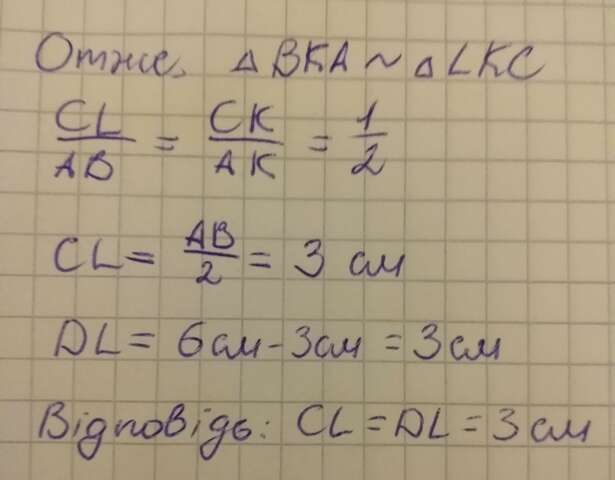 Отже, △ BKA ~ △ LKC
CL/AB = CK/AK = 1/2
CL = AB/2 = 3 см
DL = 6см - 3см = 3см
Відповідь: CL = DL = 3 см